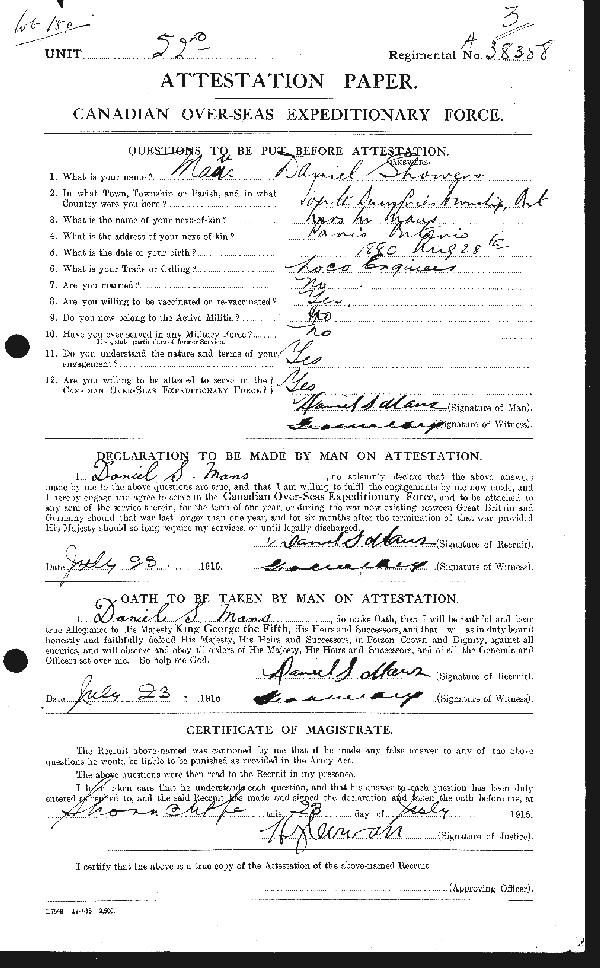 3
UNIT 52nd Regimental No. A 38358
ATTESTATION PAPER.
CANADIAN OVER-SEAS EXPEDITIONARY FORCE.
QUESTIONS TO BE PUT BEFORE ATTESTATION.
(ANSWERS)
1. What is your name? Daniel
2. In what Town, Township or Parish, and in what
Country were you born? Dumfries Township, Ont
3. What is the name of your next-of-kin? Mans
4. What is the address of your next-of-kin? Paris Ontario
5. What is the date of your birth? 1880 Aug 28th
6. What is your Trade or Calling? Loco Engineer
7. Are you married? No
8. Are you willing to be vaccinated or re-vaccinated? Yes
9. Do you now belong to the Active Militia? No
10. Have you ever served in any Military Force? No
If so, state particulars of former Service.
11. Do you understand the nature and terms of your
engagement? Yes
12. Are you willing to be attested to serve in the
CANADIAN OVER-SEAS EXPEDITIONARY FORCE? Yes
Daniel S Mans (Signature of Man).
(Signature of Witness).
DECLARATION TO BE MADE BY MAN ON ATTESTATION.
I, Daniel S. Mans, do solemnly declare that the above answers
made by me to the above questions are true, and that I am willing to fulfil the engagements by me now made, and
I hereby engage and agree to serve in the Canadian Over-Seas Expeditionary Force, and to be attached to
any arm of the service therein, for the term of one year, or during the war now existing between Great Britain and
Germany should that war last longer than one year, and for six months after the termination of that war provided
His Majesty should so long require my services, or until legally discharged.
Daniel S Mans (Signature of Recruit).
Date July 23 1915. (Signature of Witness).
OATH TO BE TAKEN BY MAN ON ATTESTATION.
I, Daniel S Mans, do make Oath, that I will be faithful and bear
true Allegiance to His Majesty King George the Fifth, His Heirs and Successors, and that I will as in duty bound
honestly and faithfully defend His Majesty, His Heirs and Successors, in Person, Crown and Dignity, against all
enemies, and will observe and obey all orders of His Majesty, His Heirs and Successors, and of all the Generals and
Officers set over me. So help me God.
Daniel S Mans (Signature of Recruit).
Date July 23 1915 (Signature of Witness).
CERTIFICATE OF MAGISTRATE.
The Recruit above-named was cautioned by me that if he made any false answer to any of the above
questions he would be liable to be punished as provided in the Army Act.
The above questions were then read to the Recruit in my presence.
I have taken care that he understands each question, and that his answer to each question has been duly
entered as replied to, and the said Recruit has made and signed the declaration and taken the oath before me, at
Shorncliffe this 23 day of July 1915.
(Signature of Justice).
I certify that the above is a true copy of the Attestation of the above-named Recruit.
(Approving Officer).